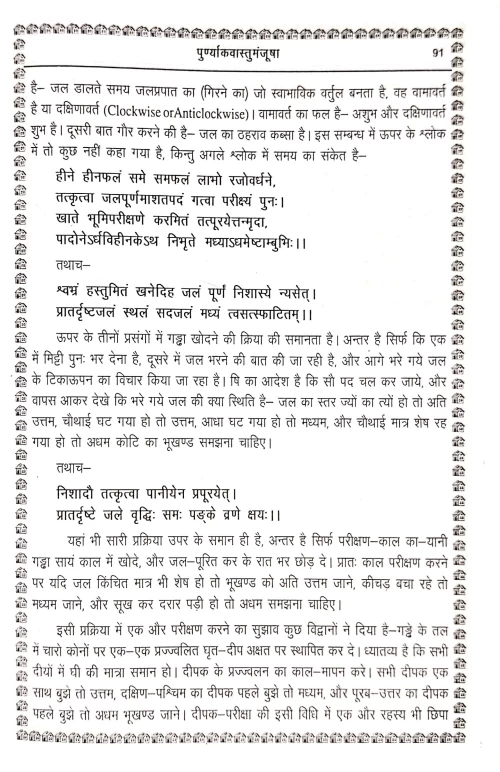 पुर्ण्याकवास्तुमंजूषा
91
है– जल डालते समय जलप्रपात का (गिरने का) जो स्वाभाविक वर्तुल बनता है, वह वामावर्त
है या दक्षिणावर्त (Clockwise orAnticlockwise)। वामावर्त का फल है– अशुभ और दक्षिणावर्त
शुभ है। दूसरी बात गौर करने की है– जल का ठहराव कब्सा है। इस सम्बन्ध में ऊपर के श्लोक
में तो कुछ नहीं कहा गया है, किन्तु अगले श्लोक में समय का संकेत है–
हीने हीनफलं समे समफलं लाभो रजोवर्धने,
तत्कृत्वा जलपूर्णमाशतपदं गत्वा परीक्ष्यं पुनः।
खाते भूमिपरीक्षणे करमितं तत्पूरयेत्तन्मृदा,
पादोनेऽर्धविहीनकेऽथ निभृते मध्याऽधमेष्टाम्बुभिः।।
तथाच–
श्वभ्रं हस्तुमितं खनेदिह जलं पूर्णं निशास्ये न्यसेत्।
प्रातर्दृष्टजलं स्थलं सदजलं मध्यं त्वसत्स्फाटितम्।।
ऊपर के तीनों प्रसंगों में गड्ढा खोदने की क्रिया की समानता है। अन्तर है सिर्फ कि एक
में मिट्टी पुनः भर देना है, दूसरे में जल भरने की बात की जा रही है, और आगे भरे गये जल
के टिकाऊपन का विचार किया जा रहा है। षि का आदेश है कि सौ पद चल कर जाये, और
वापस आकर देखे कि भरे गये जल की क्या स्थिति है– जल का स्तर ज्यों का त्यों हो तो अति
उत्तम, चौथाई घट गया हो तो उत्तम, आधा घट गया हो तो मध्यम, और चौथाई मात्र शेष रह
गया हो तो अधम कोटि का भूखण्ड समझना चाहिए।
तथाच–
निशादौ तत्कृत्वा पानीयेन प्रपूरयेत्।
प्रातर्दृष्टे जले वृद्धिः समः पङ्के व्रणे क्षयः।।
यहां भी सारी प्रक्रिया उपर के समान ही है, अन्तर है सिर्फ परीक्षण–काल का–यानी
गड्ढा सायं काल में खोदे, और जल–पूरित कर के रात भर छोड़ दे। प्रातः काल परीक्षण करने
पर यदि जल किंचित मात्र भी शेष हो तो भूखण्ड को अति उत्तम जाने, कीचड़ बचा रहे तो
मध्यम जाने, और सूख कर दरार पड़ी हो तो अधम समझना चाहिए।
इसी प्रक्रिया में एक और परीक्षण करने का सुझाव कुछ विद्वानों ने दिया है–गड्ढे के तल
में चारो कोनों पर एक–एक प्रज्ज्वलित घृत–दीप अक्षत पर स्थापित कर दे। ध्यातव्य है कि सभी
दीयों में घी की मात्रा समान हो। दीपक के प्रज्ज्वलन का काल–मापन करे। सभी दीपक एक
साथ बुझे तो उत्तम, दक्षिण–पश्चिम का दीपक पहले बुझे तो मध्यम, और पूरब–उत्तर का दीपक
पहले बुझे तो अधम भूखण्ड जाने। दीपक–परीक्षा की इसी विधि में एक और रहस्य भी छिपा